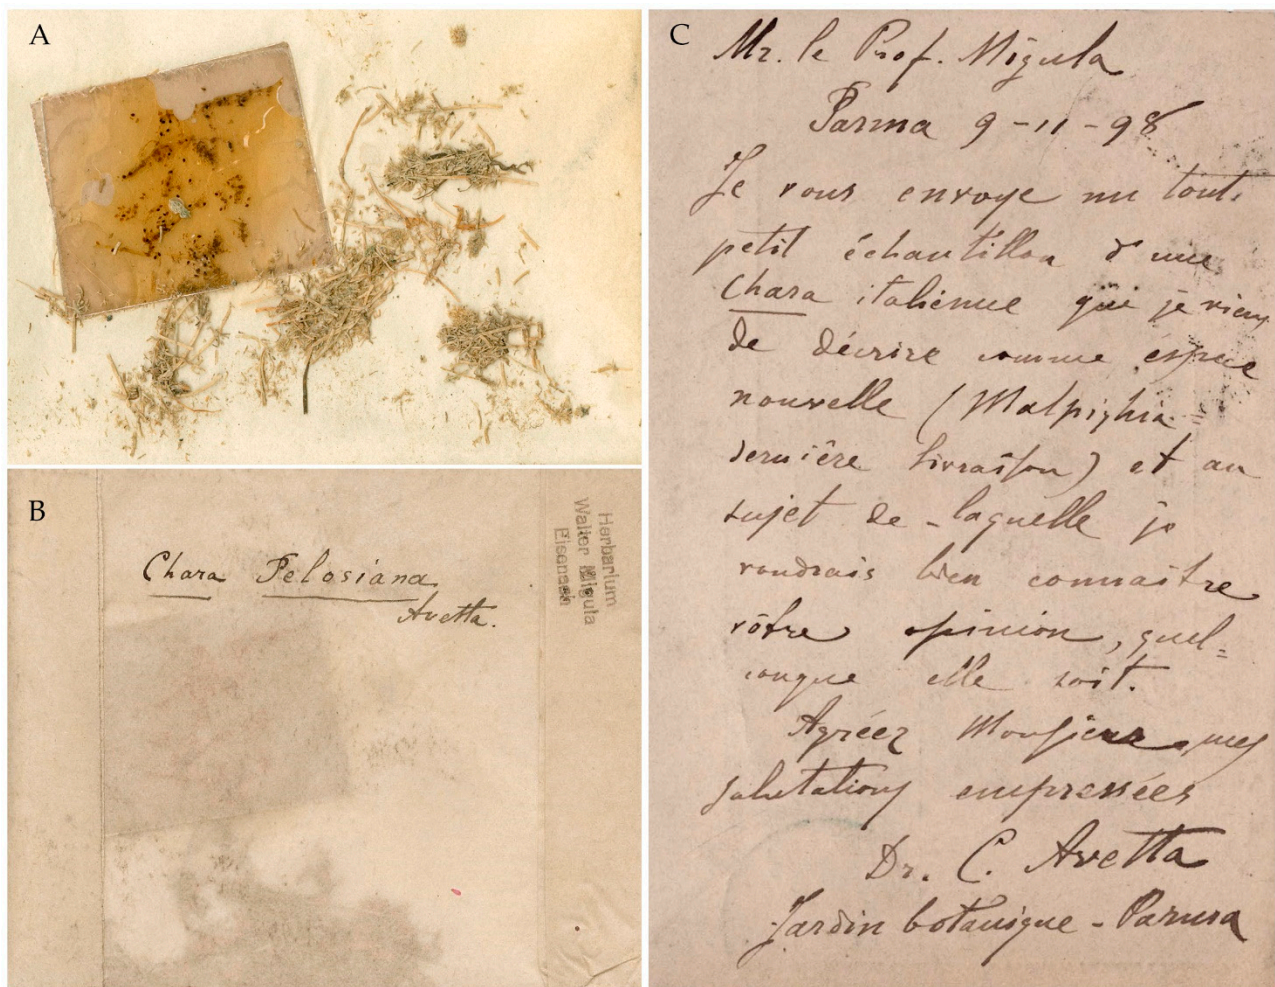 A
B
Chara Pelosiana
Avetta.
Herbarium
Walter Migula
Eisenach
C
Mr. le Prof. Migula
Parma 9-11-98
Je vous envoye un tout
petit échantillon d'une
Chara italienne que je viens
de décrire comme éspece
nouvelle (Malpighia
dernière livraison) et au
sujet de laquelle je
voudrais bien connaître
vôtre opinion, quel=
conque elle soit.
Agréez Monsieur mes
salutations empressées
Dr. C. Avetta
Jardin botanique - Parma